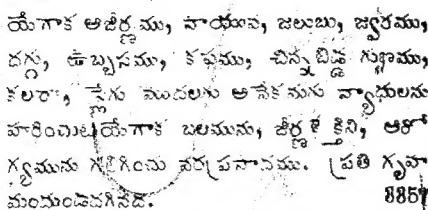 యేగాక అజీర్ణము, వాయువు, జలుబు, జ్వరము,
దగ్గు, ఉబ్బసము, కఫము, చిన్నబిడ్డ గుణము,
కలరా, ప్లేగు మొదలగు అనేకమగు వ్యాధులను
హరించుటయేగాక బలమును, జీర్ణశక్తిని, ఆరో
గ్యమును గలిగించు వరప్రసాదము. ప్రతి గృహ
మందుండదగినది. 8859